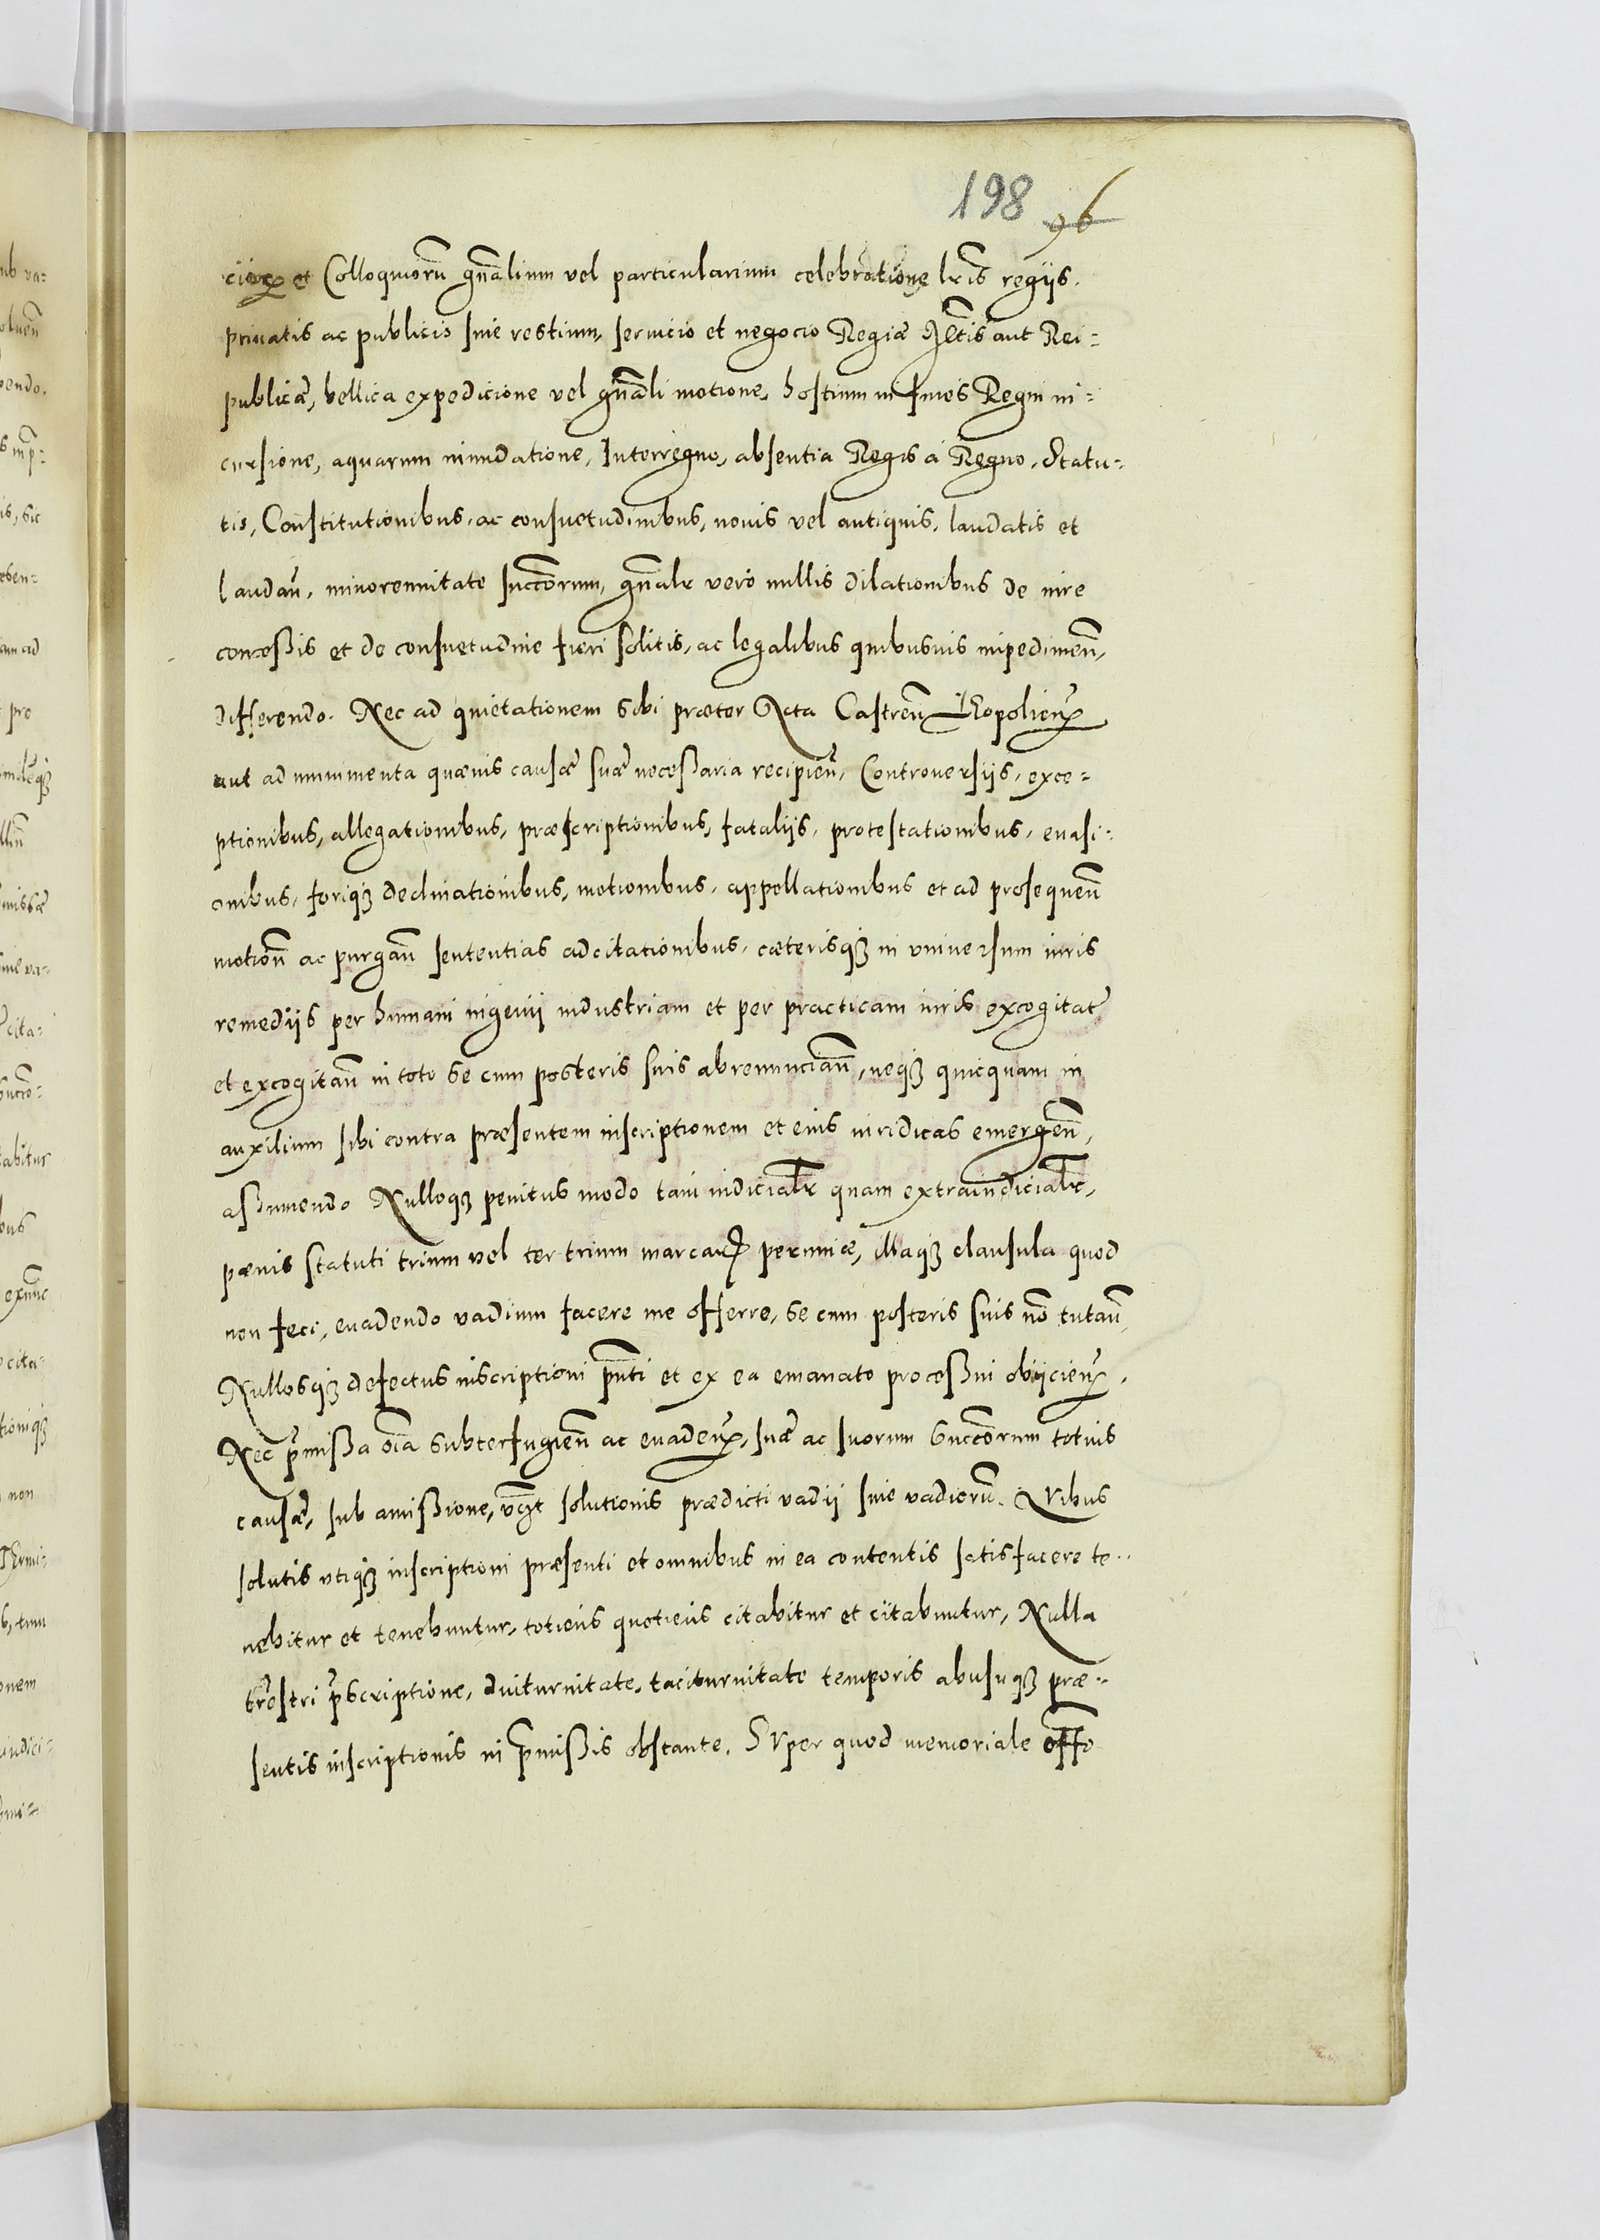 198 96
ciorum et Colloquiorū gnālium vel particularium celebratione lris regijs
priuatis ac publicis siue restium, seruicio et negocio Regiæ Mtis aut Rei=
publicæ, bellica expedicione vel gnāli motione, hostium in fines Regni in=
cursione, aquarum inundatione, Interregno, absentia Regis à Regno, Statu=
tis, Constitutionibus, ac consuetudinibus, nouis vel antiquis, laudatis et
laudan̄, minorennitate succorum, gnālr verò nullis dilationibus de iure
conceßis et de consuetudine fieri solitis, ac legalibus quibusuis impedimen̄,
differendo. Nec ad quietationem sibi præter Acta Castren̄ Leopolien̄
aut ad munimenta quæuis causæ suæ neceßaria recipien̄, Controuersijs, exce=
ptionibus, allegationibus, præscriptionibus, fatalijs, protestationibus, euasi=
onibus, foriq3 declinationibus, motionibus, appellationibus et ad prosequen̄
motion̄ ac purgan̄ sententias adcitationibus, cæterisq3 in vniuersum iuris
remedijs per humani ingenij industriam et per practicam iuris excogitat̄
et excogitan̄ in toto se cum posteris suis abrenuncian̄, neq3 quicquam in
auxilium sibi contra præsentem inscriptionem et eius iuridicas emergen̄,
aßumendo Nulloq3 penitus modo tam iudicialr quam extraiudicialr,
pænis statuti trium vel ter trium marcarum pecuniæ, illaq3 clausula quod
non feci, euadendo vadium facere me offerre, se cum posteris suis nō tutan̄
Nullosq3 defectus inscriptioni pn̄ti et ex ea emanato proceßui obijcien̄.
Nec pmißa oīa subterfugien̄ ac euaden̄, suæ ac suorum succorum totius
causæ, sub amißione, vczt solutionis prædicti vadij siue vadiorū. Quibus
solutis vtiq3 inscriptioni præsenti et omnibus in ea contentis satisfacere te=
nebitur et tenebuntur, totiens quotiens citabitur et citabuntur, Nulla
trestri pscriptione, diuturnitate, taciturnitate temporis abusuq3 præ=
sentis inscriptionis in pmißis obstante. SVper quod memoriale offo